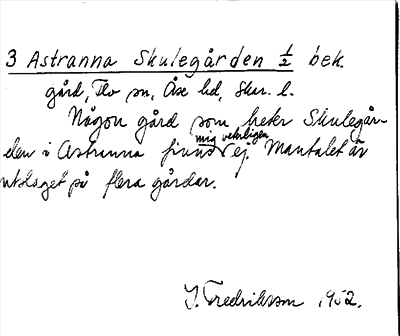 3 Astranna Skulegården ½ bek.
gård, Flo sn, Åse hd, Skar. l.
Någon gård som heter Skulegår-
den i Astranna finns mig veterligen ej. Mantalet är
utslaget på flera gårdar.
J. Fredriksson 1952.